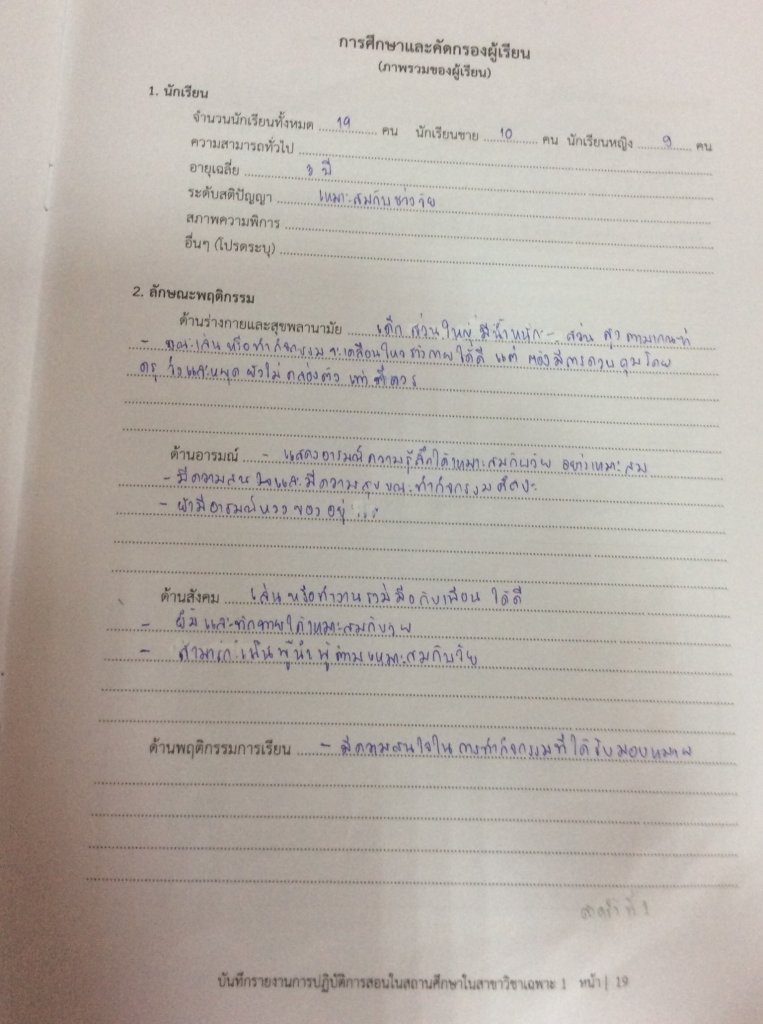 การศึกษาและคัดกรองผู้เรียน
(ภาพรวมของผู้เรียน)
1. นักเรียน
จำนวนนักเรียนทั้งหมด 19 คน นักเรียนชาย 10 คน นักเรียนหญิง 9 คน
ความสามารถทั่วไป
อายุเฉลี่ย 3 ปี
ระดับสติปัญญา เหมาะสมกับช่วงวัย
สภาพความพิการ
อื่นๆ (โปรดระบุ)
2. ลักษณะพฤติกรรม
ด้านร่างกายและสุขพลานามัย เด็กส่วนใหญ่มีน้ำหนัก - ส่วนสูงตามเกณฑ์
- ขณะเล่นหรือทำกิจกรรมจะเคลื่อนไหวร่างกายได้ดี แต่ต้องมีการควบคุมโดย
ครู วิ่งและหยุดยังไม่คล่องตัวเท่าที่ควร
ด้านอารมณ์ - แสดงอารมณ์ความรู้สึกได้เหมาะสมกับวัย อย่างเหมาะสม
- มีความสนใจและมีความสุขขณะทำกิจกรรมศิลปะ
- ยังมีอารมณ์หวงของอยู่
ด้านสังคม เล่นหรือทำงานร่วมมือกับเพื่อนได้ดี
- ยิ้มและทักทายได้เหมาะสมกับวัย
- สามารถเป็นผู้นำผู้ตามเหมาะสมกับวัย
ด้านพฤติกรรมการเรียน - มีความสนใจในการทำกิจกรรมที่ได้รับมอบหมาย
บันทึกรายงานการปฏิบัติการสอนในสถานศึกษาในสาขาวิชาเฉพาะ 1 หน้า | 19